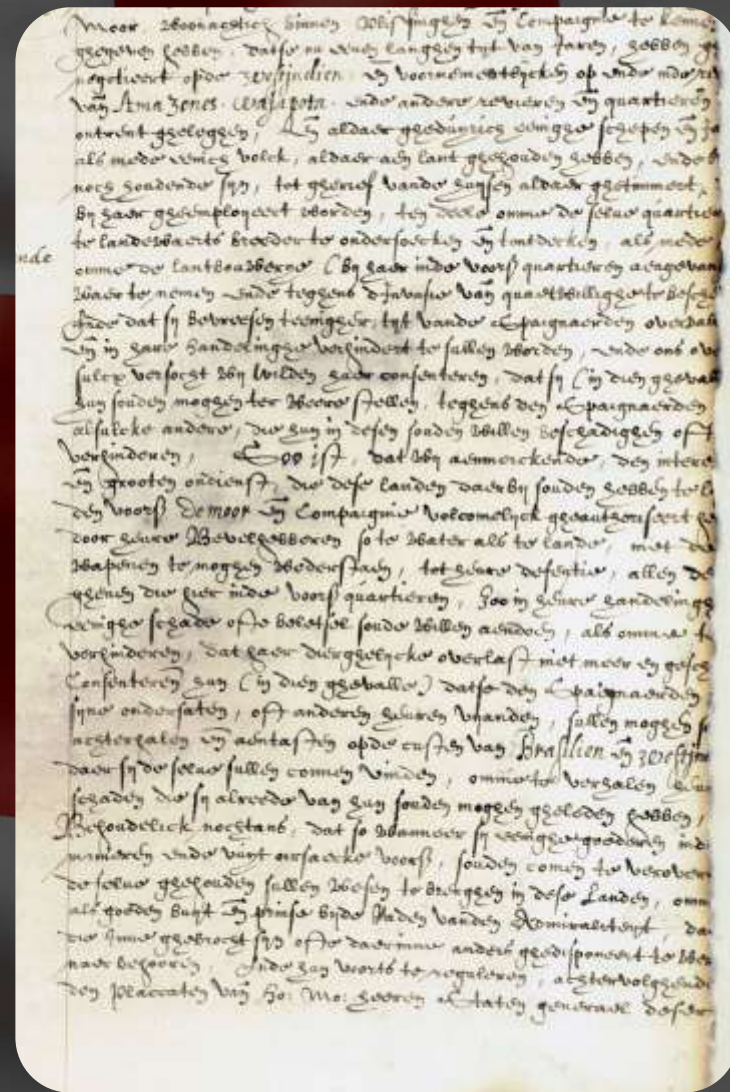 Moor Woonachtich binnen Vlissinghen en Compaignie te kennen
ghegeven hebben, datse nu eenen langhen tijt van Jaren, hebben
negotieert opde Westindien en voornementlijcken op ende inde
van Amazones. Wasapota. ende andere revieren en quartieren
ontrent gheleghen, En aldaer ghedurich eenighe schepen en
als mede eenich volck, aldaer aen lant ghehouden hebben, ende
noch houdende sijn, tot gherief vande huijsen aldaer ghetimmert,
bij haer gheemployeert worden, ten deele omme de selve quartier
te landewaerts breeder te ondersoecken en t'ontdecken, als mede
nde
omme de lantbouwerye (bij haer inde voors quartieren aengevan
waer te nemen ende teghens d'Invasie van quaetwillighe te besche
Ende dat sij bevreesen teenigher tijt vande Spaignaerden overval
en in hare handelinghe verhindert te sullen worden, ende ons
sulcx versocht wij wilden haer consenteren, dat sij (in dien gheval
hun souden moghen ter weere stellen, teghens den Spaignaerden
alsulcke andere, die hun in desen souden willen beschadighen oft
verhinderen, Soo ist, dat wij aenmerckende, den intere
en grooten ondienst, die dese landen daerbij souden hebben te
den voors de moor en Compaignie volcomelijck gheauthoriseert
door heure Bevelhebberen so te water als te lande, met
wapenen te moghen wederstaen, tot heure defentie, allen de
ghenen die hier inde voors quartieren, Zoo in heure handelingh
eenighe schade ofte beletsel soude willen aendoen, als omme te
verhinderen, dat haer dierghelycke overlast niet meer en gesch
Consenteren hun (in dien ghevalle) datse den Spaignaerden
sijne ondersaten, oft anderen heuren vijanden, sullen moghen
achterhalen en aentasten opde custen van Brasilien en Westin
daer sij de selve sullen connen vinden, omme te verhalen
schaden die sij alreede van hun souden moghen gheleden hebben,
Behoudelick nochtans, dat so wanneer sij eenighe goederen in
manieren ende uuyt oirsaecke voors, souden comen te verover
de selve ghehouden sullen wesen te brenghen in dese Landen, omm
als goeden buyt en prinse bijde Raden vanden Admiraliteyt,
die Inne ghebrocht sijn ofte daerinne anders ghedisponeert te
naer behooren, Ende hun voorts te reguleren, achtervolghende
den Placcaten van Ho: Mo: heeren Staten generael deser